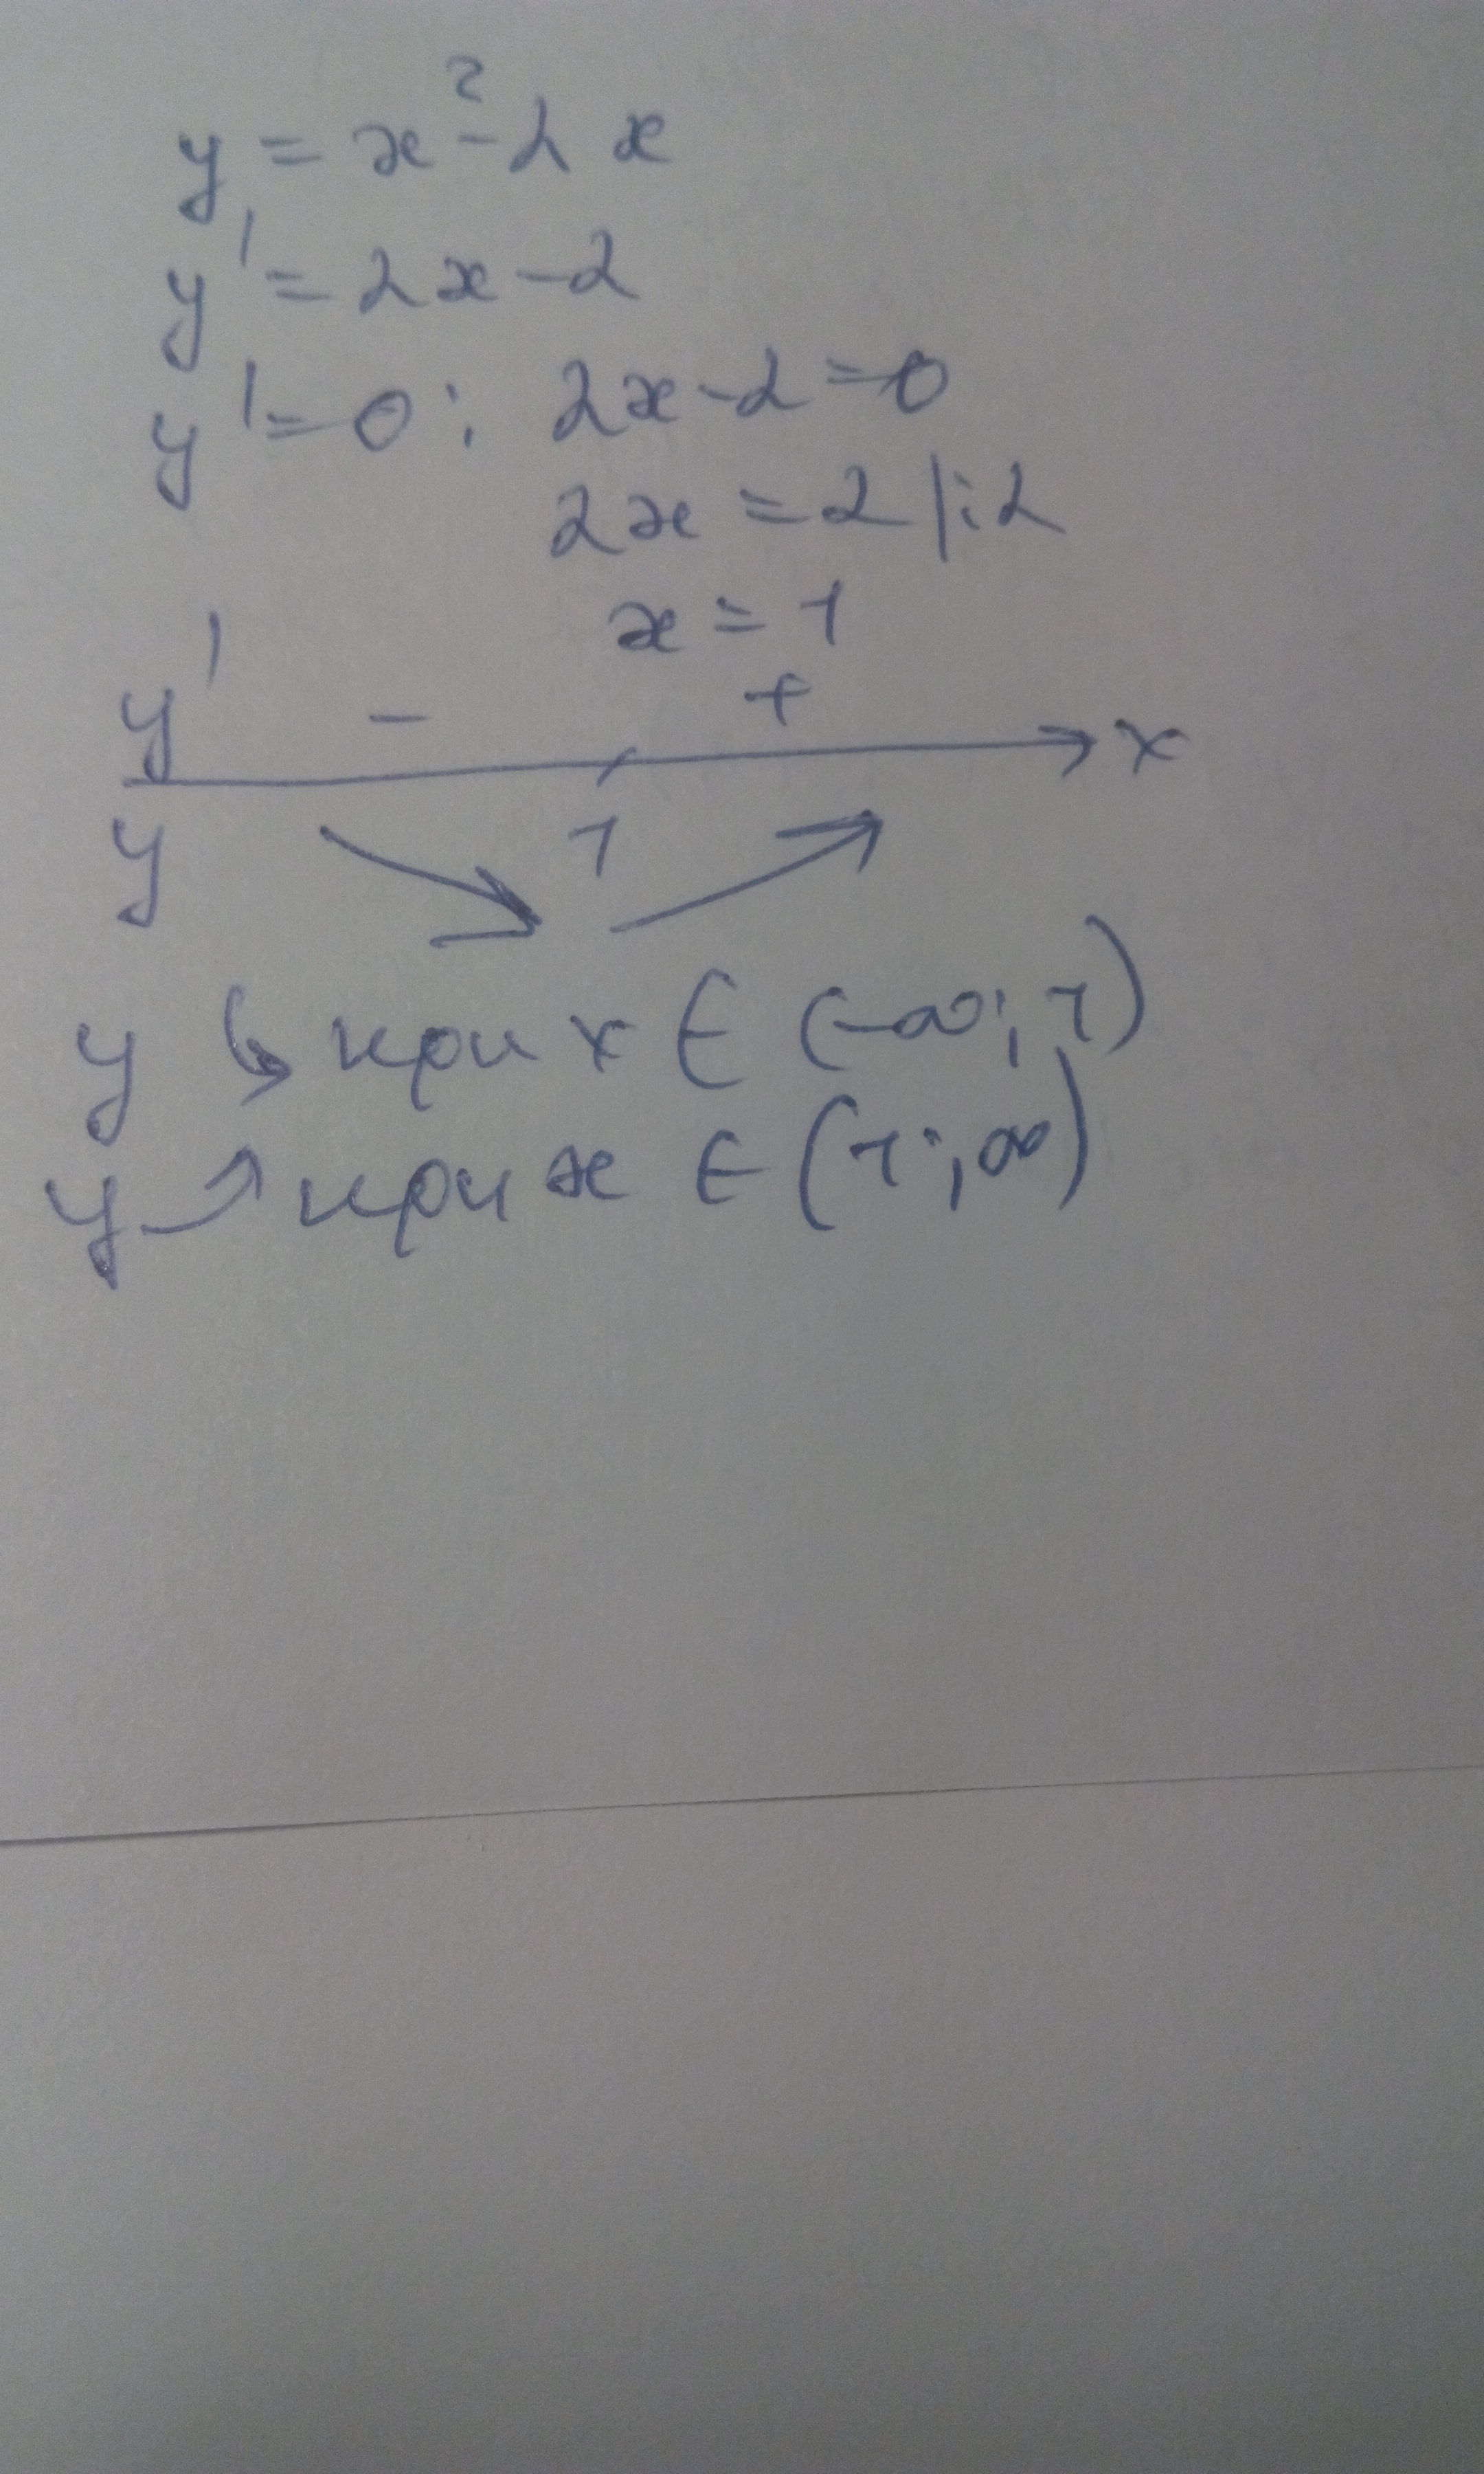 y = x² - 2x
y' = 2x - 2
y' = 0: 2x - 2 = 0
2x = 2 |:2
x = 1
y' - +
x
y 1
y ↘ при x ∈ (-∞; 1)
y ↗ при x ∈ (1; ∞)